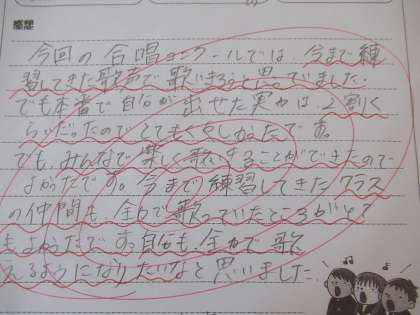 感想
今回の合唱コンクールでは今まで練
習してきた歌声で歌いきろうと思っていました。
でも本番で自分が出せた実力は、2割く
らいだったのでとてもくやしかったです。
でも、みんなで楽しく歌いきることができたので
よかったです。今まで練習してきたクラス
の仲間も、全力で歌っていたところがとて
もよかったです。自分も、全力で歌
えるようになりたいなと思いました。